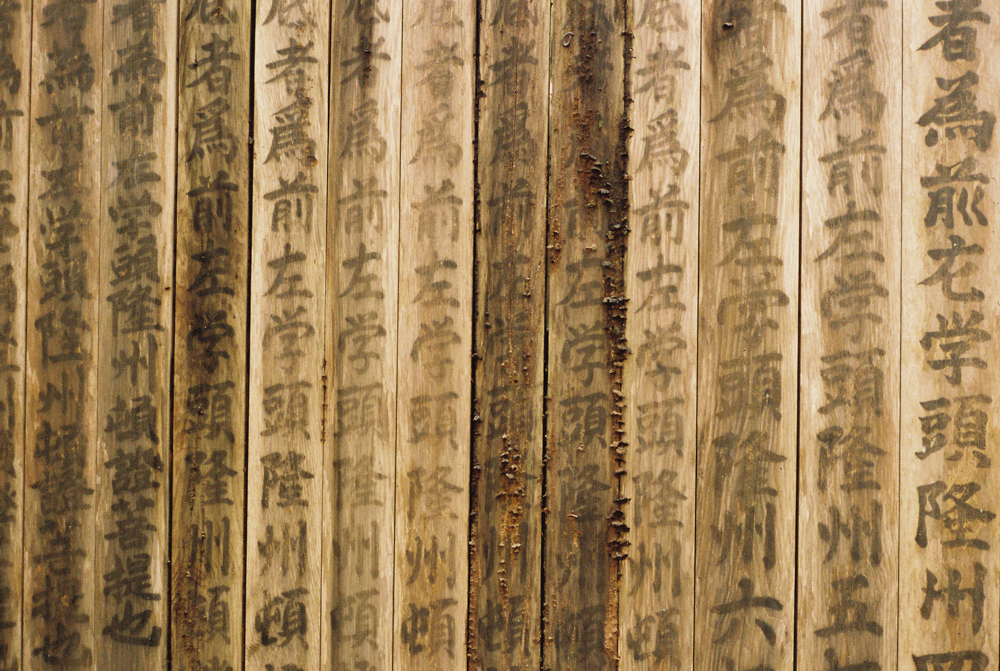 者為前左学頭隆州
者爲前左学頭隆州五
爲前左学頭隆州六
者爲前左学頭隆州頓
前左学頭隆州頓
者爲前左学頭州頓
者爲前左学頭隆州頓
者爲前左学頭隆州頓
底者爲前左学頭隆州頓
底者爲前左学頭隆州頓
者為前左学頭隆州頓證菩提也
者為前左学頭隆州頓證菩提也